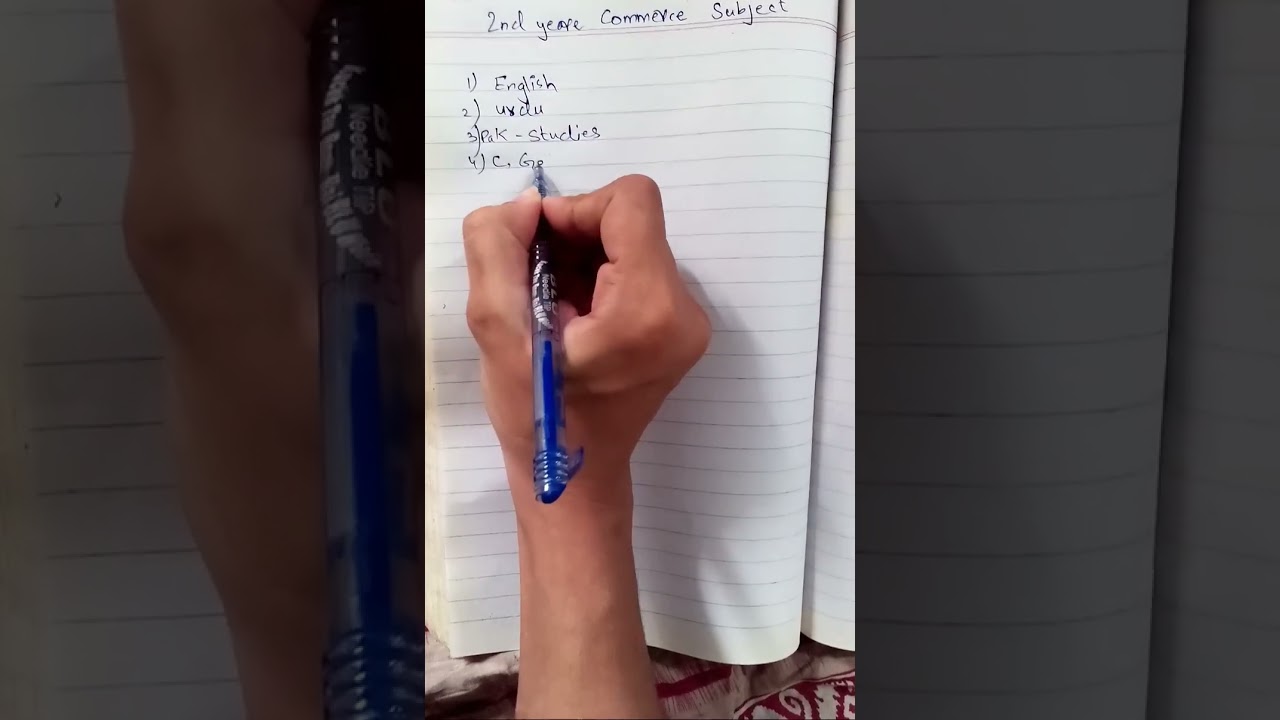 2nd yeare Commerce Subject
1) English
2) urdu
3) Pak - Studies
4) C. Ge
Needle Tip